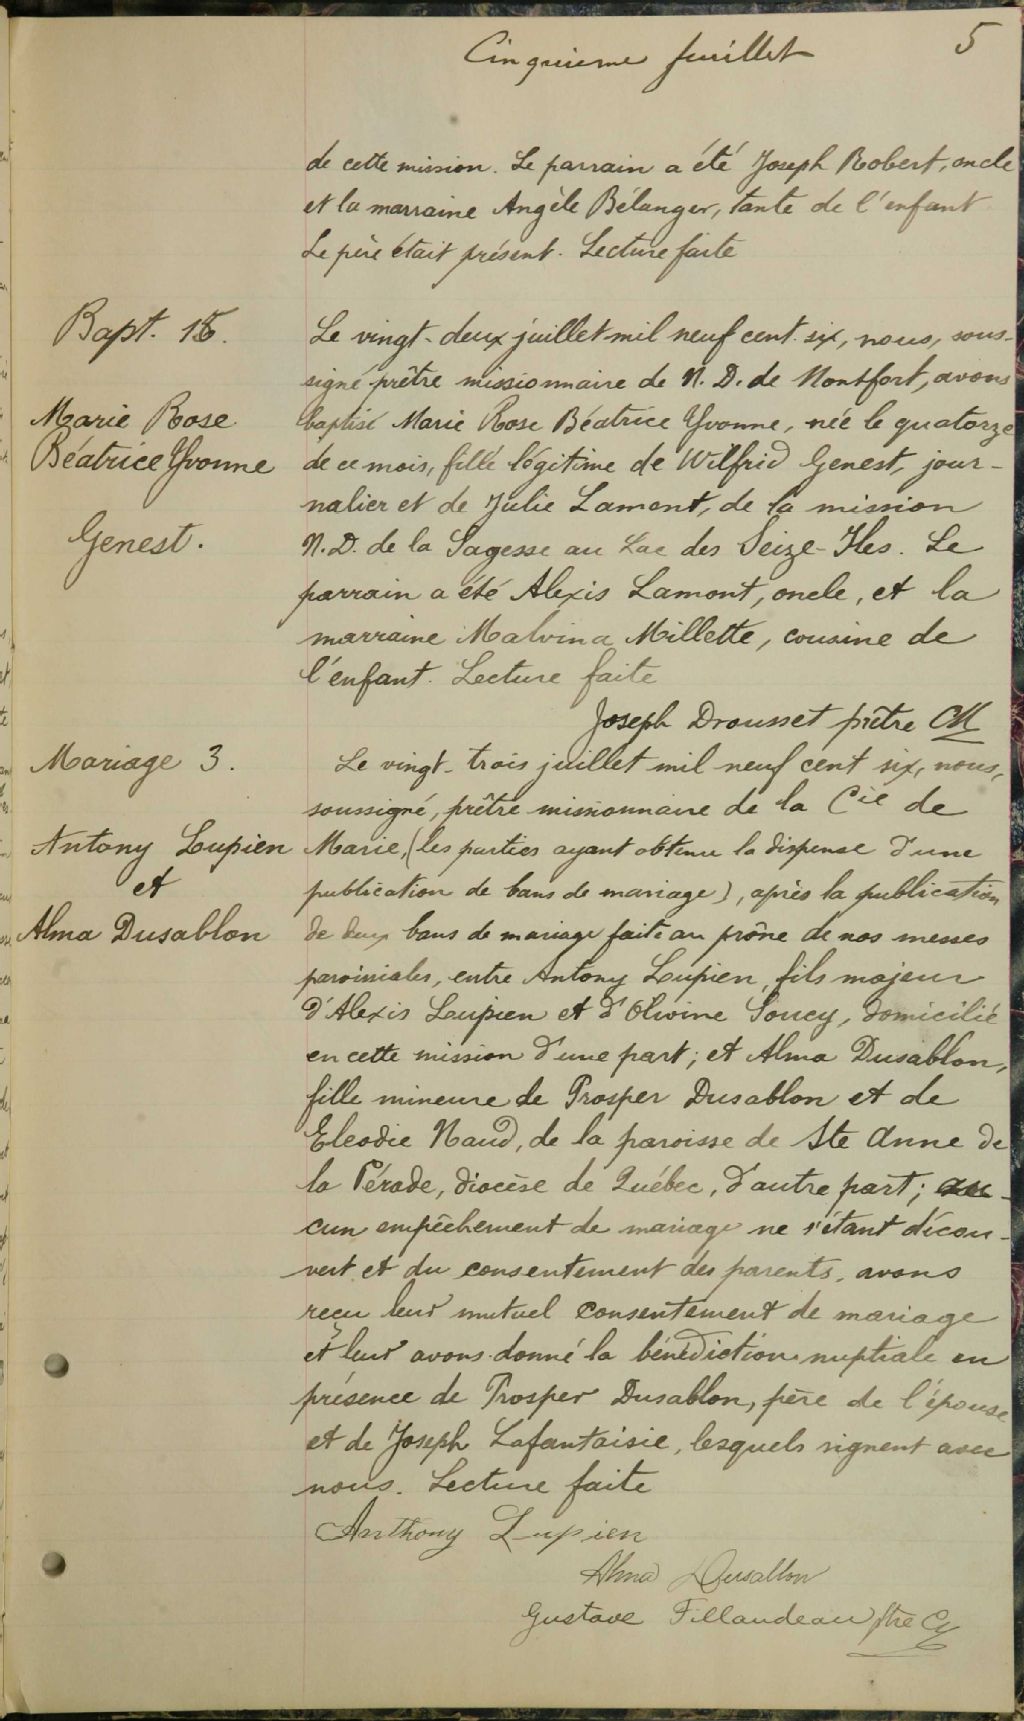 Cinquieme feuillet
5
de cette mission. Le parrain a été Joseph Robert, oncle
et la marraine Angèle Bélanger, tante de l'enfant
Le père était présent. Lecture faite
Bapt. 15.
Le vingt-deux juillet mil neuf cent six, nous, sous-
signé prêtre missionnaire de N. D. de Montfort, avons
Marie Rose
baptisé Marie Rose Béatrice Yvonne, née le quatorze
Béatrice Yvonne
de ce mois, fille légitime de Wilfrid Genest, jour-
nalier et de Julie Lamont, de la mission
Genest.
N. D. de la Sagesse au Lac des Seize-Iles. Le
parrain a été Alexis Lamont, oncle, et la
marraine Malvina Millette, cousine de
l'enfant. Lecture faite
Joseph Drousset prêtre CM
Mariage 3.
Le vingt-trois juillet mil neuf cent six, nous,
soussigné, prêtre missionnaire de la Cie de
Antony Lupien
Marie, (les parties ayant obtenu la dispense d'une
et
publication de bans de mariage), après la publication
Alma Dusablon
de deux bans de mariage faite au prône de nos messes
paroissiales, entre Antony Lupien, fils majeur
d'Alexis Lupien et d'Olivine Soucy, domicilié
en cette mission d'une part; et Alma Dusablon,
fille mineure de Prosper Dusablon et de
Eleodie Naud, de la paroisse de Ste Anne de
la Pérade, diocèse de Québec, d'autre part; au-
cun empêchement de mariage ne s'étant décou-
vert et du consentement des parents, avons
reçu leur mutuel consentement de mariage
et leur avons donné la bénédiction nuptiale en
présence de Prosper Dusablon, père de l'épouse
et de Joseph Lafantaisie, lesquels signent avec
nous. Lecture faite
Anthony Lupien
Alma Dusablon
Gustave Fillaudeau ptre